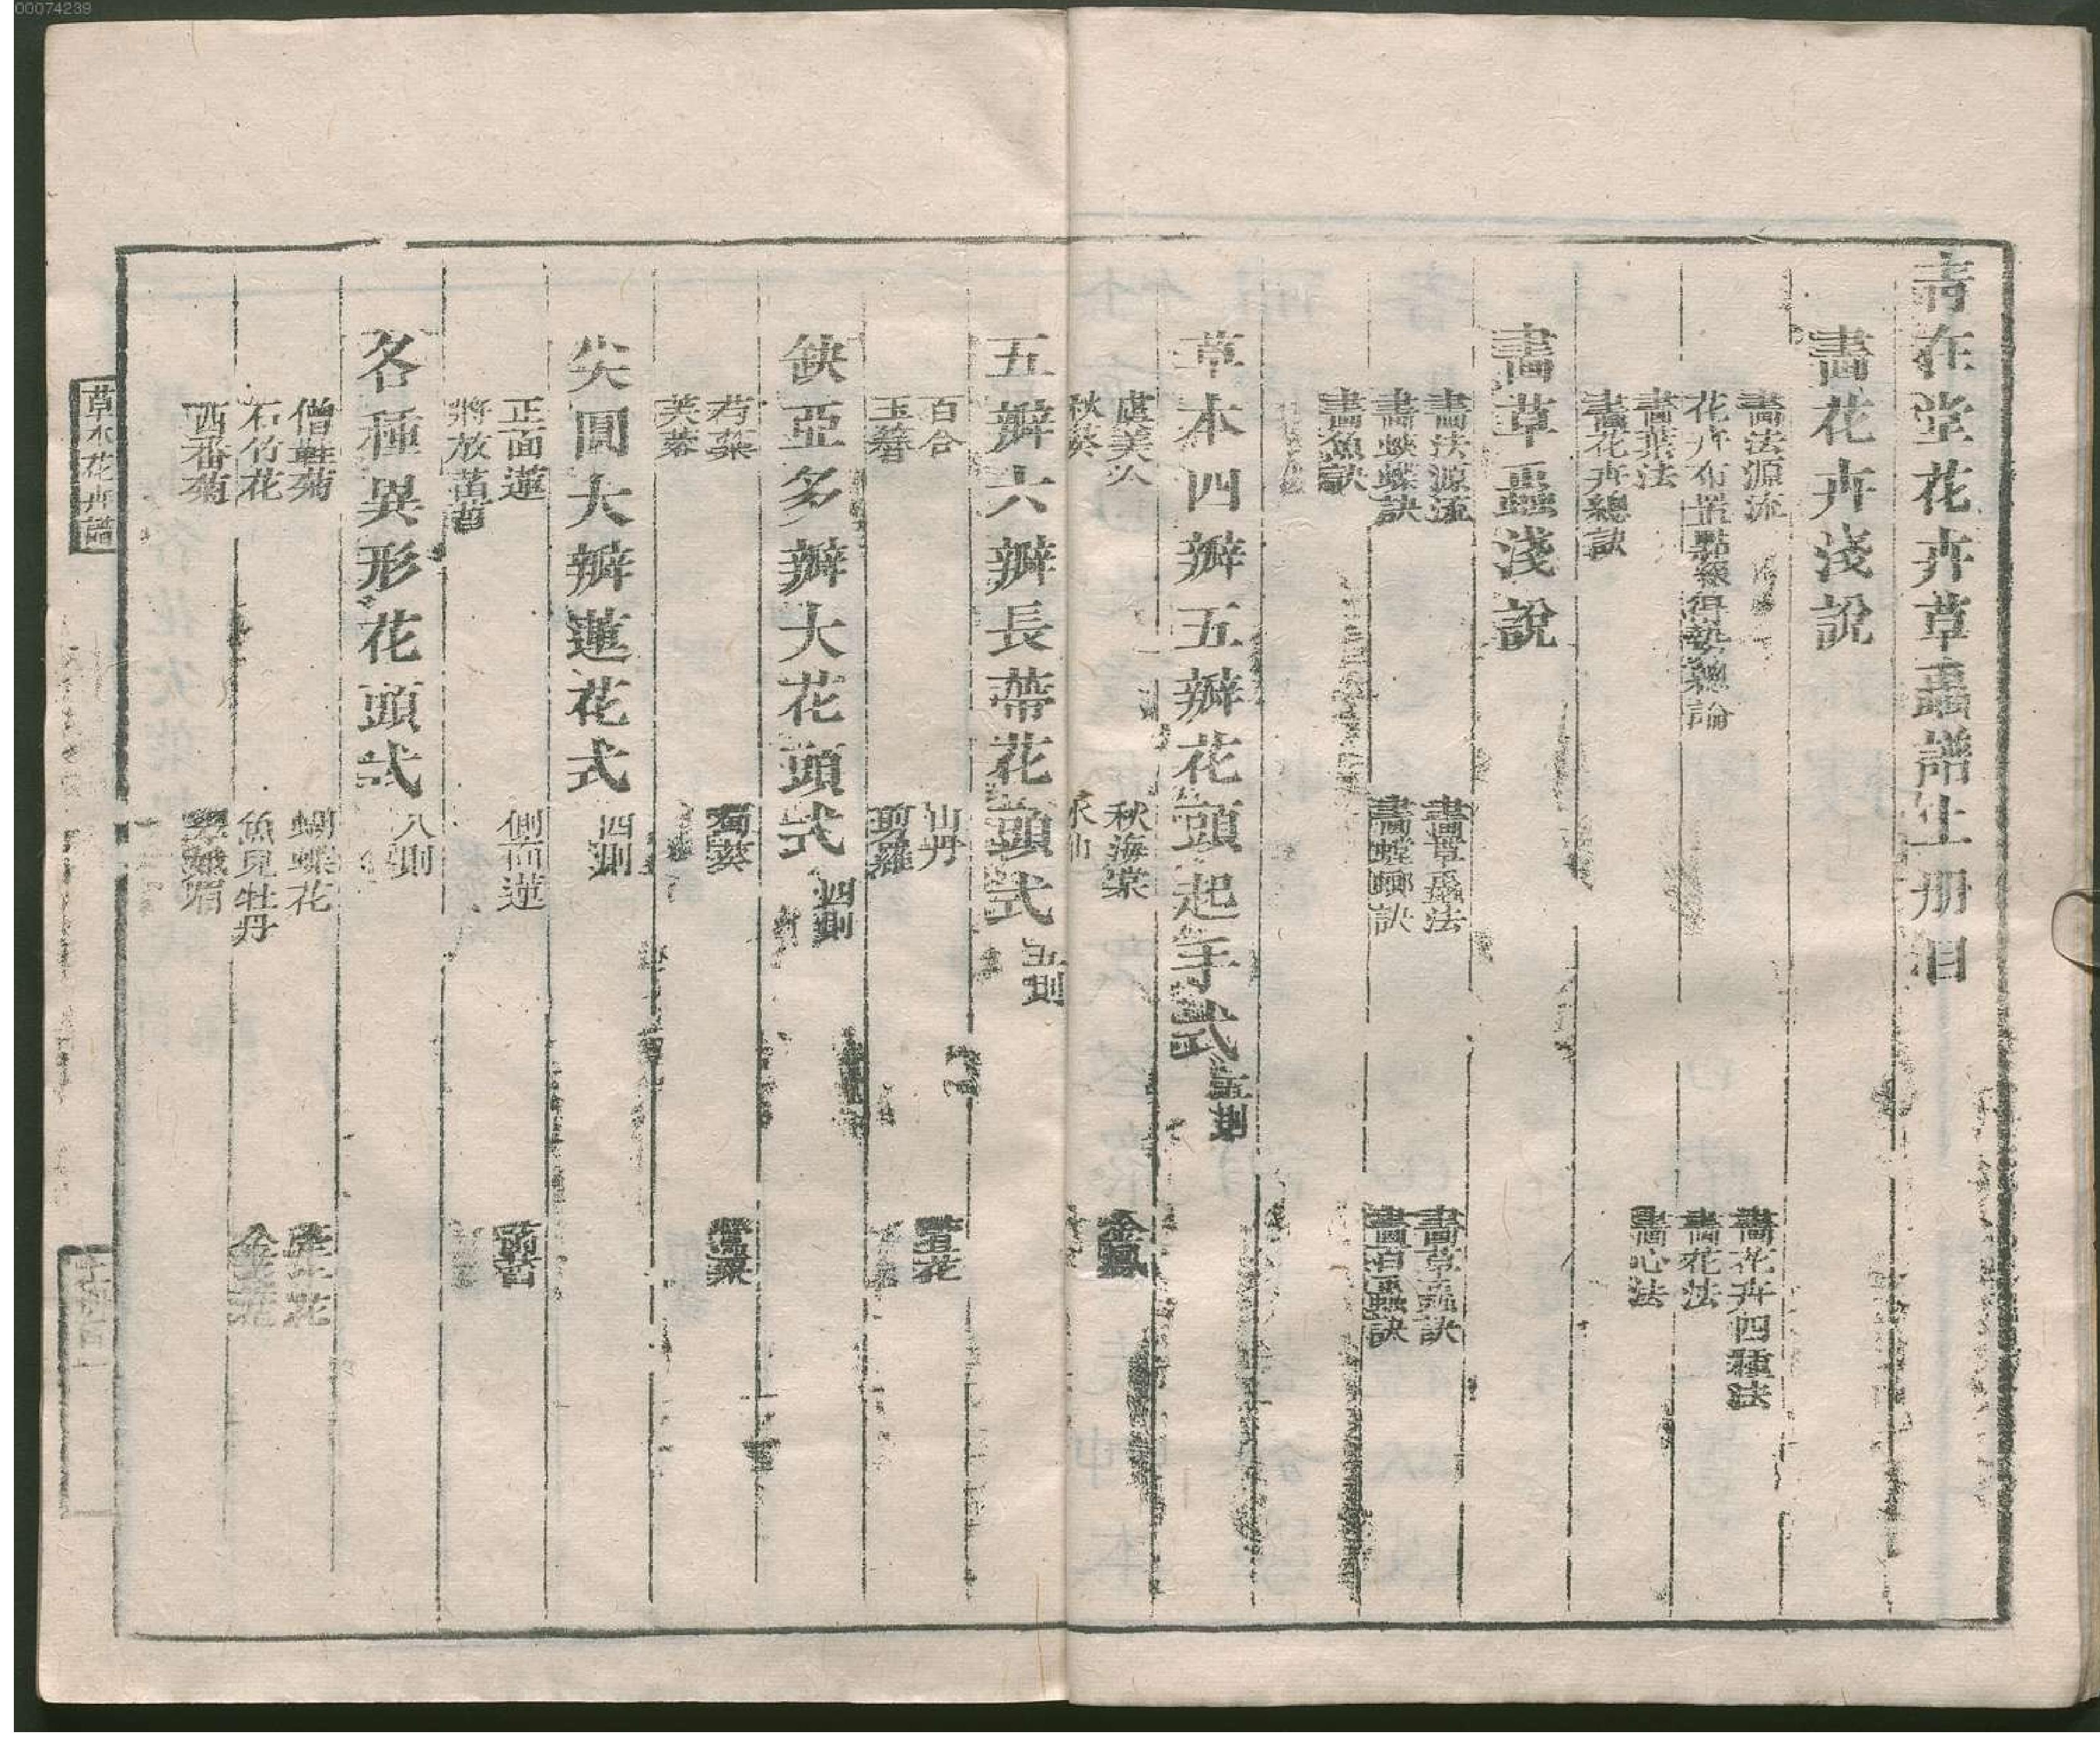 00074239
青在堂花卉草蟲譜上册目
畫花卉淺說
畫法源流
畫花卉四種法
花卉布置點綴得勢總論
畫花法
畫葉法
畫心法
畫花卉總訣
畫草蟲淺說
畫法源流
畫草蟲法
畫草蟲訣
畫蛺蝶訣
畫螳螂訣
畫百蟲訣
畫魚訣
草本四瓣五瓣花頭起手式
五則
虞美人
秋海棠
金鳳
秋葵
水仙
五瓣六瓣長蒂花頭式
五則
百合
山丹
萱花
玉簪
翦羅
缺亞多瓣大花頭式
四則
芍藥
蜀葵
罌粟
芙蓉
尖圓大瓣蓮花式
四則
正面蓮
側面蓮
菡萏
將放菡萏
各種異形花頭式
八則
僧鞋菊
蝴蝶花
牽牛花
石竹花
魚兒牡丹
金莲花
西番菊
翠娥眉
草木花卉譜